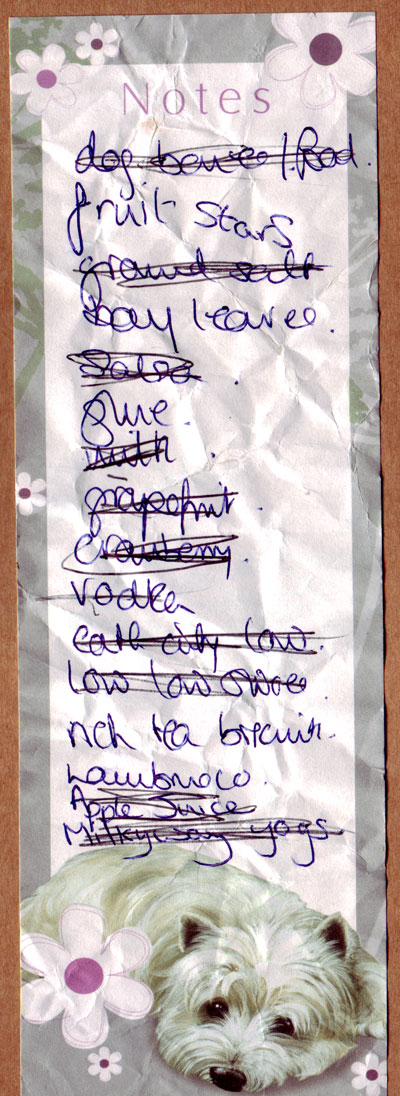 Notes
dog bones / food.
fruit stars
ground salt
bay leaves.
Salsa.
glue.
milk.
grapefruit.
Cranberry.
vodka
low low
rich tea biscuits.
Lambrusco.
Apple Juice
Milkyway yogs